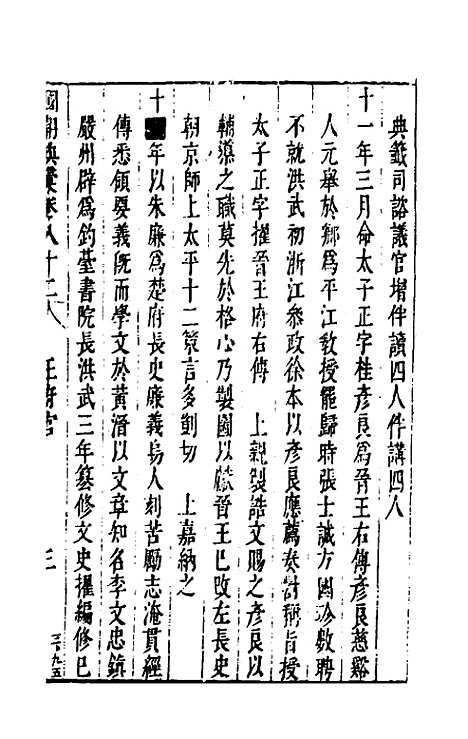 典籤司諮議官增伴讀四人伴講四人
十一年三月命太子正字桂彥良為晉王右傅彥良慈谿
人元舉於鄉為平江教授罷歸時張士誠方國珍數聘
不就洪武初浙江叅政徐本以彥良應薦奏對稱旨授
太子正字擢晉王府右傅 上親製誥文賜之彥良以
輔導之職莫先於格心乃製圖以獻晉王已改左長史
朝京師上太平十二策言多剴切 上嘉納之
十 年以朱廉為楚府長史廉義烏人刻苦勵志淹貫經
傳悉領要義既而學文於黃溍以文章知名李文忠鎮
嚴州辟為釣臺書院長洪武三年纂修文史擢編修已
國朝典彙卷八十二 王府官 三
三九五